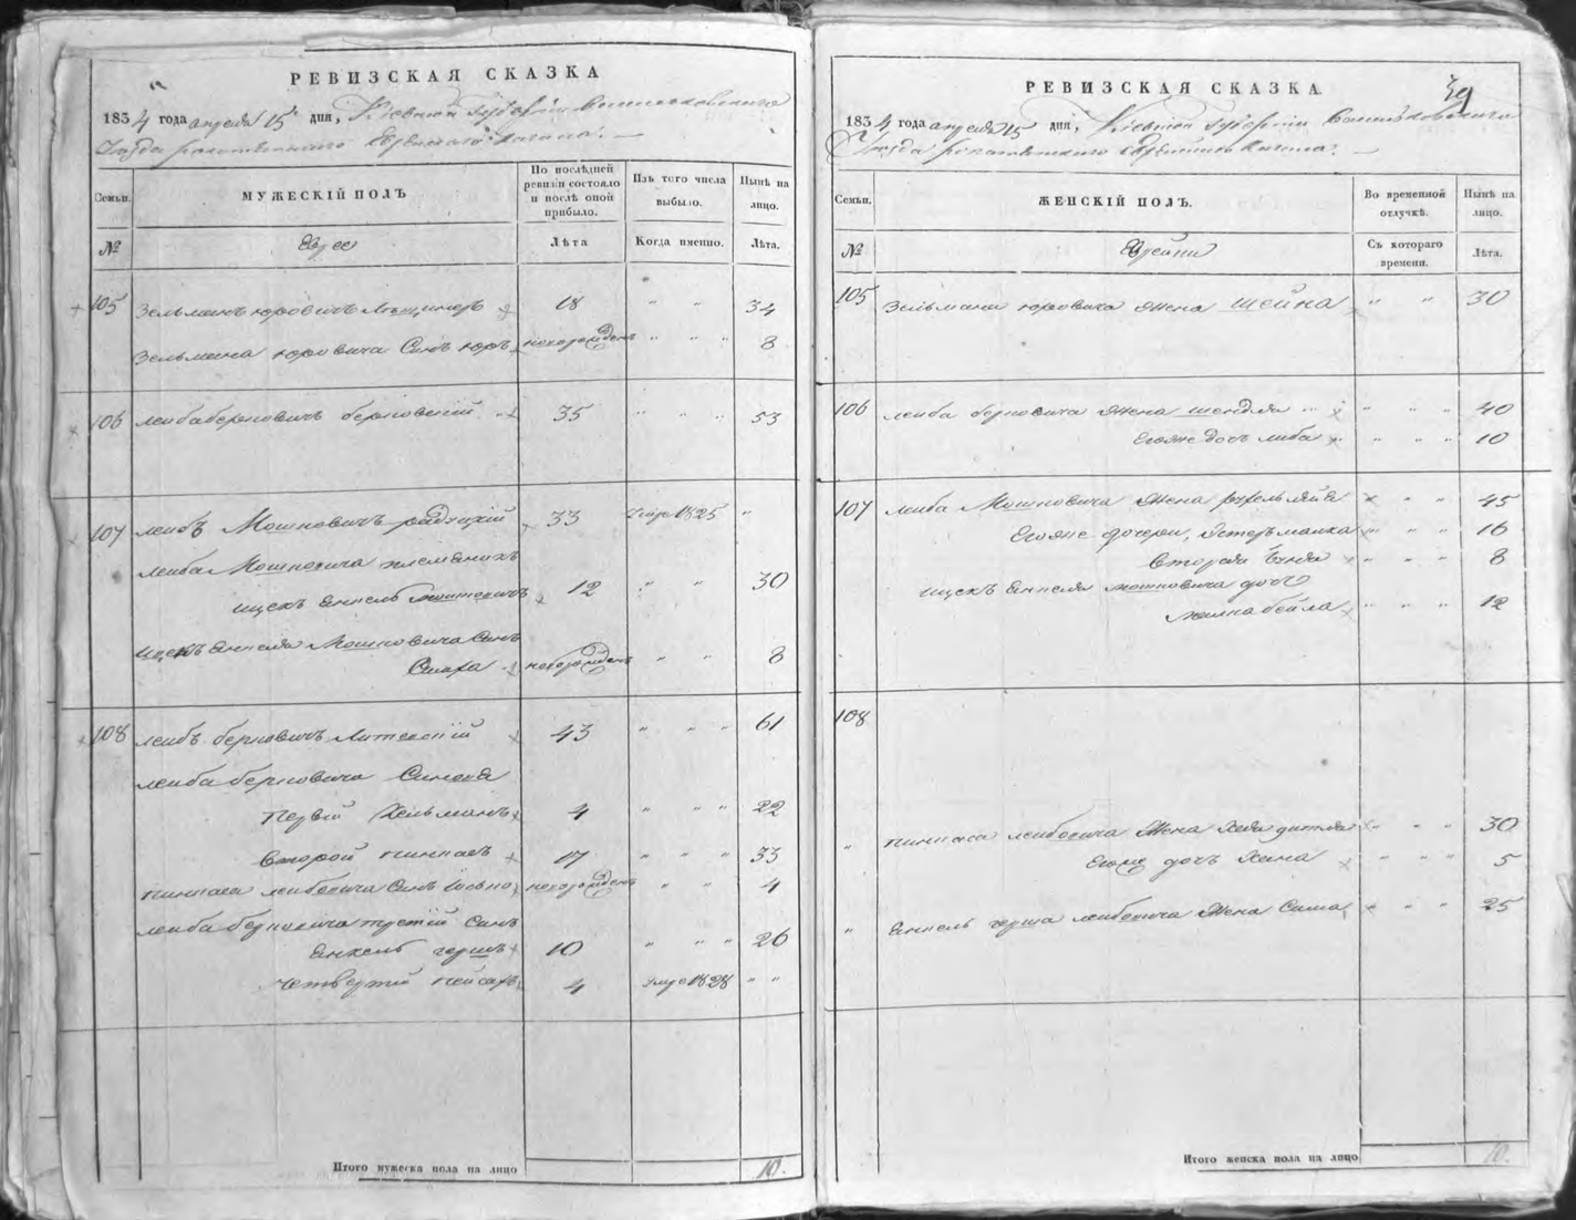 РЕВИЗСКАЯ СКАЗКА
1834 года апреля 15 дня, Киевской Губернии Васильковского
Уезда рокитянского Еврейского Кагала.
Семьи. МУЖЕСКІЙ ПОЛЪ По послѣдней ревизіи состояло и послѣ оной прибыло. Изъ того числа выбыло. Нынѣ на лицо.
№ Евреи Лѣта Когда именно. Лѣта.
105 Зельманъ юровичъ 18 " " 34
Зельмана юровича Синъ юръ новорожденъ " " " 8
106 лейба берковичъ берковскій 35 " " " 53
107 лейбъ Мошковичъ 33 Умре 1825 "
лейба Мошковича племеникъ
ицекъ Енкель Мошковичъ 12 " " 30
ицекъ Енкеля Мошковича Синъ
новорожденъ " " 8
108 лейбъ берковичъ 43 " " " 61
лейба берковича Синовя
Первій Хельманъ 4 " " " 22
Второй пинкасъ 17 " " " 33
пинкаса лейбовича Синъ новорожденъ " " 4
лейба берковича третій Синъ
Енкель гершъ 10 " " " 26
Четвертій пейсахъ 4 Умре 1828 " "
Итого мужеска пола на лицо 10.
РЕВИЗСКАЯ СКАЗКА. 39
1834 года апреля 15 дня, Киевской Губернии Васильковского
Уезда рокитянского Еврейского Кагала.
Семьи. ЖЕНСКІЙ ПОЛЪ. Во временной отлучкѣ. Нынѣ на лицо.
№ Еврейки Съ котораго времени. Лѣта.
105 Зельмана юровича жена шейка " " 30
106 лейба берковича жена шендля " " " 40
Егоже дочъ либа " " " 10
107 лейба Мошковича жена " " 45
Егоже дочери, Естеръ малка " " 16
Вторая " " " 8
ицекъ Енкеля мошковича дочъ
бейла " " " 12
108
" пинкаса лейбовича жена " " " 30
Егоже дочъ Хана " " " 5
" Енкель герша лейбовича жена " " 25
Итого женска пола на лицо 10.